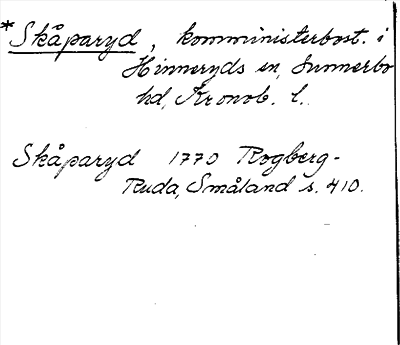 *Skåparyd, komministerbost. i
Hinneryds sn, Sunnerbo
hd, Kronob. l.
Skåparyd 1770 Rogberg-
Ruda, Småland s. 410.